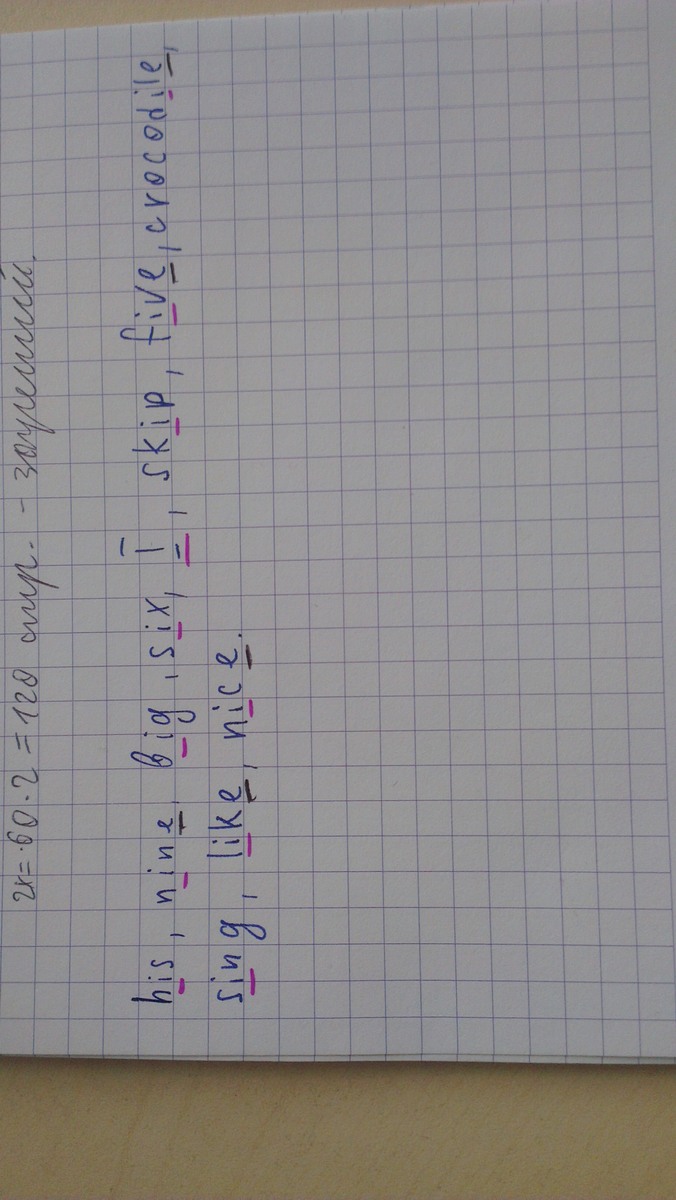 2 = 60 · 2 = 120 стр. -
his, nine, big, six, I, skip, five, crocodile,
sing, like, nice.